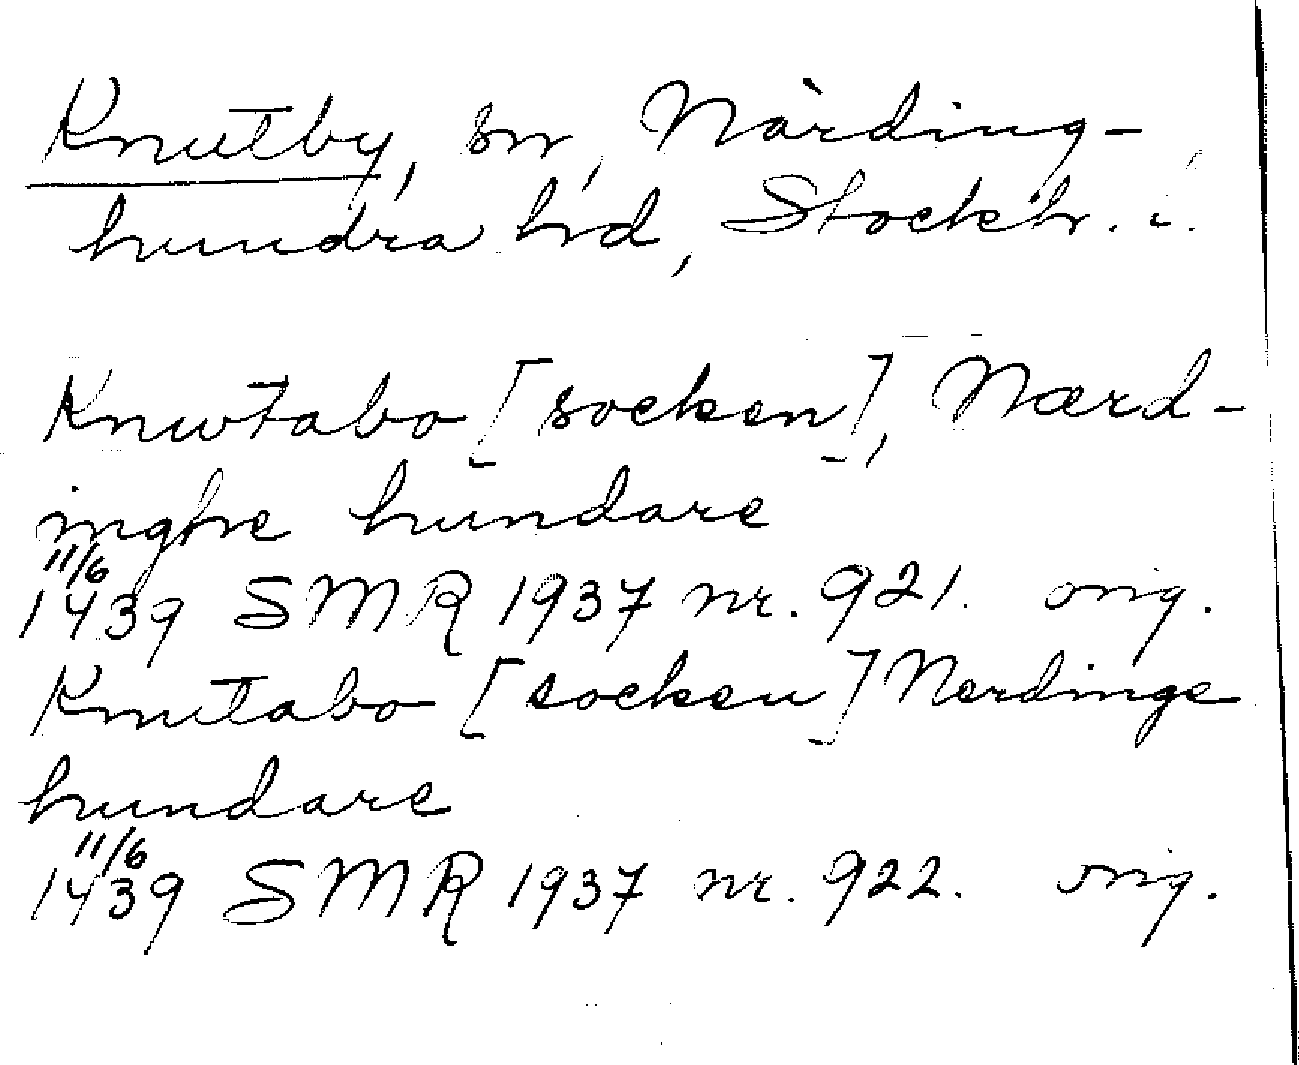 Knutby, sn, Närding-
hundra hrd, Stockh. l.
Knwtabo [socken], Nærd-
inghe hundare
11/6
1439 SMR 1937 nr. 921. orig.
Knutabo [socken] Nerdinge
hundare
11/6
1439 SMR 1937 nr. 922. orig.